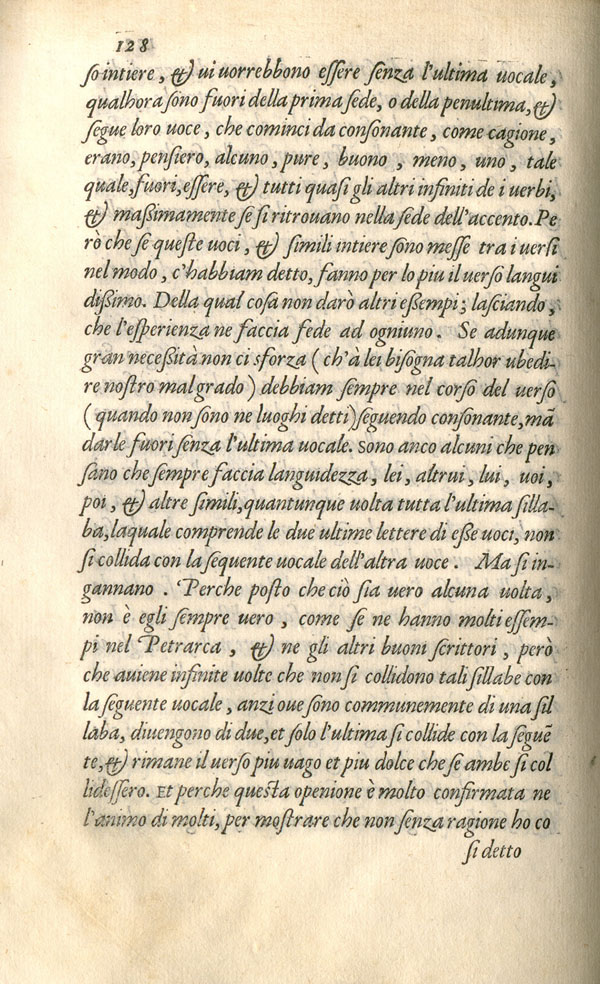 128
so intiere, & ui uorrebbono essere senza l'ultima uocale,
qualhora sono fuori della prima sede, o della penultima, &
segue loro uoce, che cominci da consonante, come cagione,
erano, pensiero, alcuno, pure, buono, meno, uno, tale
quale, fuori, essere, & tutti quasi gli altri infiniti de i uerbi,
& maßimamente se si ritrouano nella sede dell'accento. Pe
rò che se queste uoci, & simili intiere sono messe tra i uersi
nel modo, c'habbiam detto, fanno per lo piu il uerso langui
dißimo. Della qual cosa non darò altri eßempi; lasciando,
che l'esperienza ne faccia fede ad ogniuno. Se adunque
gran necessità non ci sforza (ch'à lei bisogna talhor ubedi-
re nostro malgrado) debbiam sempre nel corso del uerso
(quando non sono ne luoghi detti) seguendo consonante, mã
darle fuori senza l'ultima uocale. Sono anco alcuni che pen
sano che sempre faccia languidezza, lei, altrui, lui, uoi,
poi, & altre simili, quantunque uolta tutta l'ultima silla-
ba, laquale comprende le due ultime lettere di eße uoci, non
si collida con la sequente uocale dell'altra uoce. Ma si in-
gannano. Perche posto che ciò sia uero alcuna uolta,
non è egli sempre uero, come se ne hanno molti essem-
pi nel Petrarca, & ne gli altri buoni scrittori, però
che auiene infinite uolte che non si collidono tali sillabe con
la seguente uocale, anzi oue sono communemente di una sil
laba, diuengono di due, et solo l'ultima si collide con la seguẽ
te, & rimane il uerso piu uago et piu dolce che se ambe si col
lidessero. Et perche questa openione è molto confirmata ne
l'animo di molti, per mostrare che non senza ragione ho co
si detto